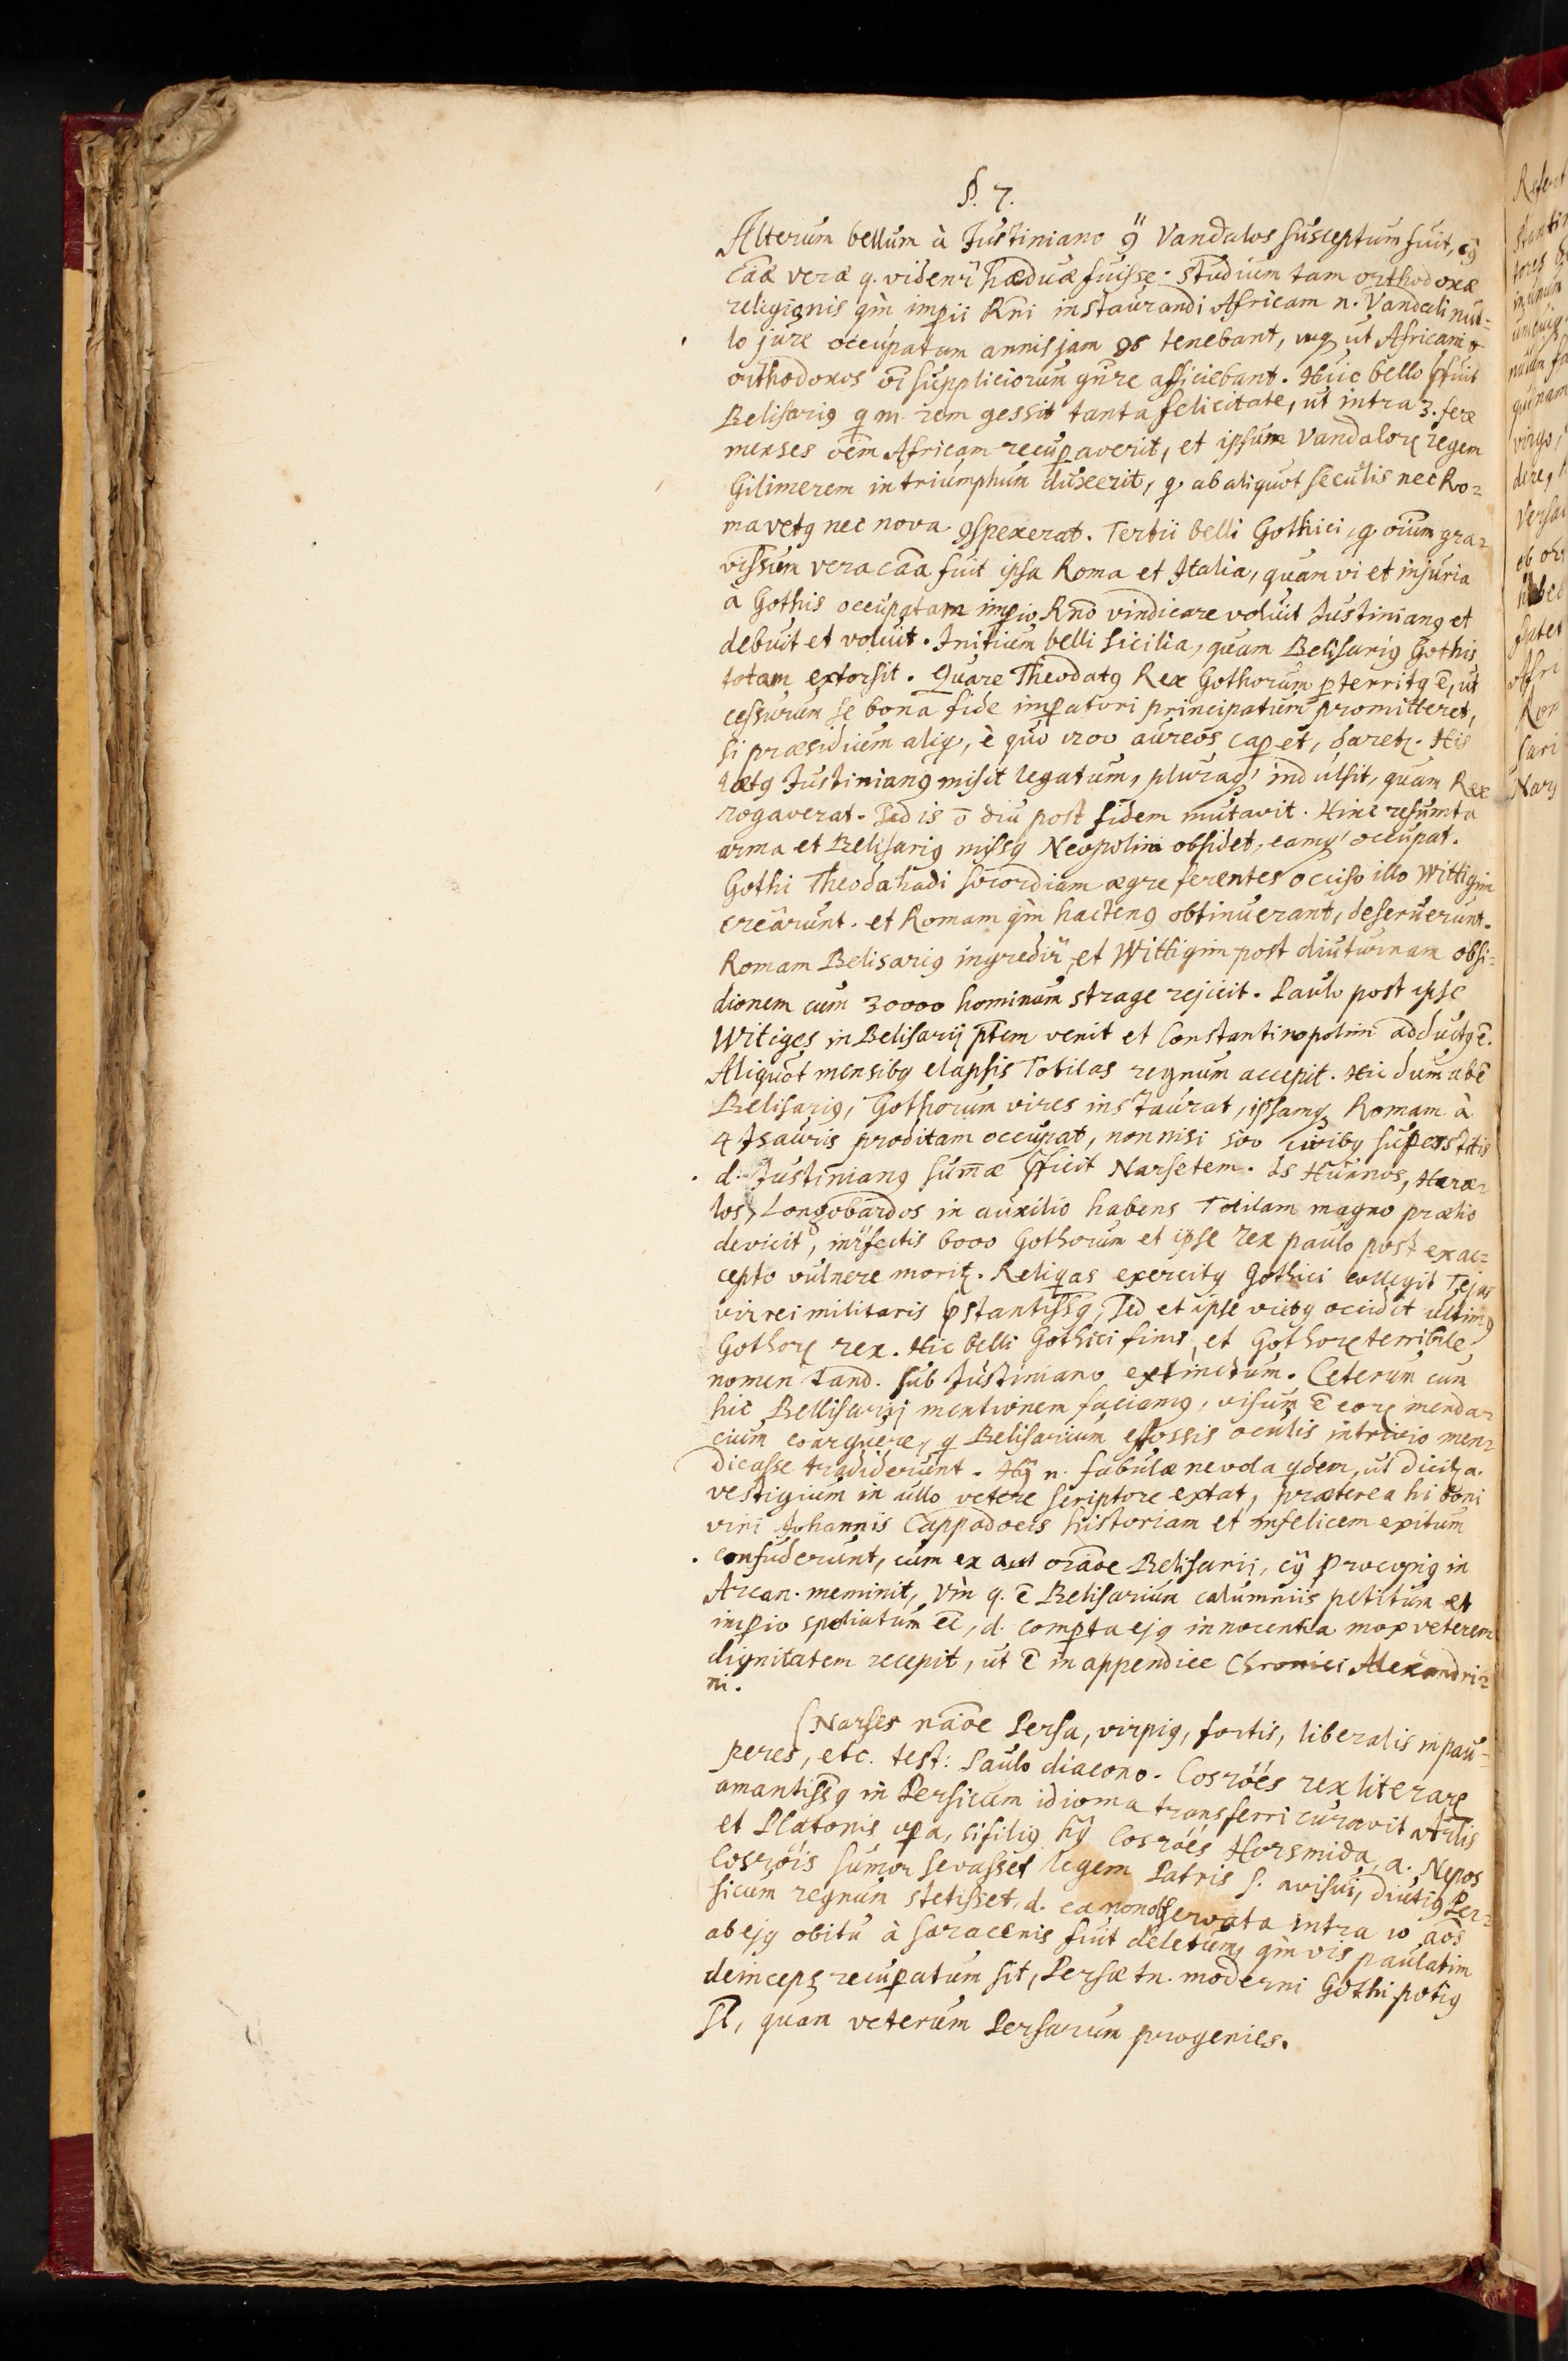 §. 7.
Alterum bellum à Justiniano ꝯ̈ Vandalos susceptum fuit, cꝯ
caãe veræ q. videnr̃ hæ duæ fuisse. Studium tam orthodoxæ
religionis qm̀ imꝑii Rñi instaurandi Africam n. Vandali nul=
lo jure occupatam annis jam 95 tenebant, ut Africam
orthodoxos oĩ suppliciorum gñre afficiebant. Huic bello ꝓfuit
Belisariꝯ q m. rem gessit tanta felicitate, ut intra 3. fere
menses oẽm Africam recuꝑaverit, et ipsum Vandaloꝝ regem
Gilimerem in triumphum duxerit, q. ab aliquot seculis nec Ro=
ma vetꝯ nec nova ꝯspexerat. Tertii belli Gothici, q oĩum gra=
vissim̃ vera caãa fuit ipsa Roma et Italia, quam vi et injuria
à Gothis occupatam imꝑio Rñō vindicare voluit Justinianꝯ et
debuit et voluit. Initium belli Sicilia, quam Belisariꝯ Gothis
totam extorsit. Quare Theodatꝯ Rex Gothorum ꝑterritꝯ ẽ, ut
cessurum se bona fide imꝑatori principatum promitteret,
si præsidium aliq, è quo 1200 aureos caꝑet, daretꝛ. His
lætꝯ Justinianꝯ misit legatum, pluraqꝫ indulsit, quam Rex
rogaverat. Sed is õ diu post fidem mutavit. Hinc resumta
arma et Belisariꝯ missꝯ Neopolim obsidet, eamqꝫ occupat.
Gothi Theodahadi socordiam ægre ferentes occiso illo Wittigim
creârunt. et Romam qm̀ hactenꝯ obtinuerant, deseruerunt.
Romam Belisariꝯ ingredir̃, et Wittigim post diuturnam obsi=
dionem cum 30000 hominum strage rejicit. Paulo post ipse
Witiges in Belisarij ptẽm venit et Constantinopolim adductꝯ ẽ.
Aliquot mensibꝯ elapsis Totilas regnum accepit. Hic dum abẽ
Belisariꝯ, Gothorum vires instaurat, ipsamqꝫ Romam à
4 Isauris proditam occupat, non nisi 500 civibꝯ superstitis
d. Justinianꝯ sum̃æ ꝓficit Narsetem. Is Hunnos, Heru=
los, Longobardos in auxilio habens Totilam magno prælio
devicit, inr̃fectis 6000 Gothorum et ipse rex paulo post ex ac=
cepto vulnere moritꝛ. Reliquas exercitꝯ Gothici collegit Tejas
vir rei militaris ꝓstantissꝯ, Sed et ipse victꝯ occidit ultimꝯ
Gothoꝝ rex. Hic belli Gothici finis, et Gothoꝝ terribile
nomen tand. sub Justiniano extinctum. Ceterum cum
hic Bellisarij mentionem faciamꝯ, visum ẽ eoꝝ menda=
cium coarguere, q Belisarium effossis oculis in trivio men=
dicasse tradiderunt. Hꝯ n. fabulæ ne vola qdem, ut dicitꝛ a.
vestigium in ullo vetere scriptore extat, præterea hi boni
viri Johannis Cappadocis historiam et infelicem exitum
confuderunt, cum ex oraõe Belisarii, cꝯ Procopiꝯ in
Arcan. meminit, Vm̀ q. ẽ Belisarium calumniis petitum et
imꝑio spoliatum eẽ, d. comꝑta ejꝯ innocentia mox veterem
dignitatem recepit, ut ẽ in appendice Chronici Alexandri=
ni.
(Narses naõe Persa, vir piꝯ, fortis, liberalis in pau=
peres, etc. test: Paulo diacono. Cosröés rex literaꝝ
amantissꝯ in Persicum idioma transferri curavit Artlis
et Platonis oꝑa, si filiꝯ hꝯ Cosröés Horsmida, a. Nepos
Cosröis sumor servasset legem Patris s. avi sui, diutiꝯ Per=
sicum regnum stetisset, d. ea non observata intra 10 aõs
ab ejꝯ obitu à Saracenis fuit deletum, qm̀ vis paulatim
deinceps recuꝑatum sit, Persæ tn. moderni Gothi potiꝯ
st̃, quam veterum Persarum progenies.